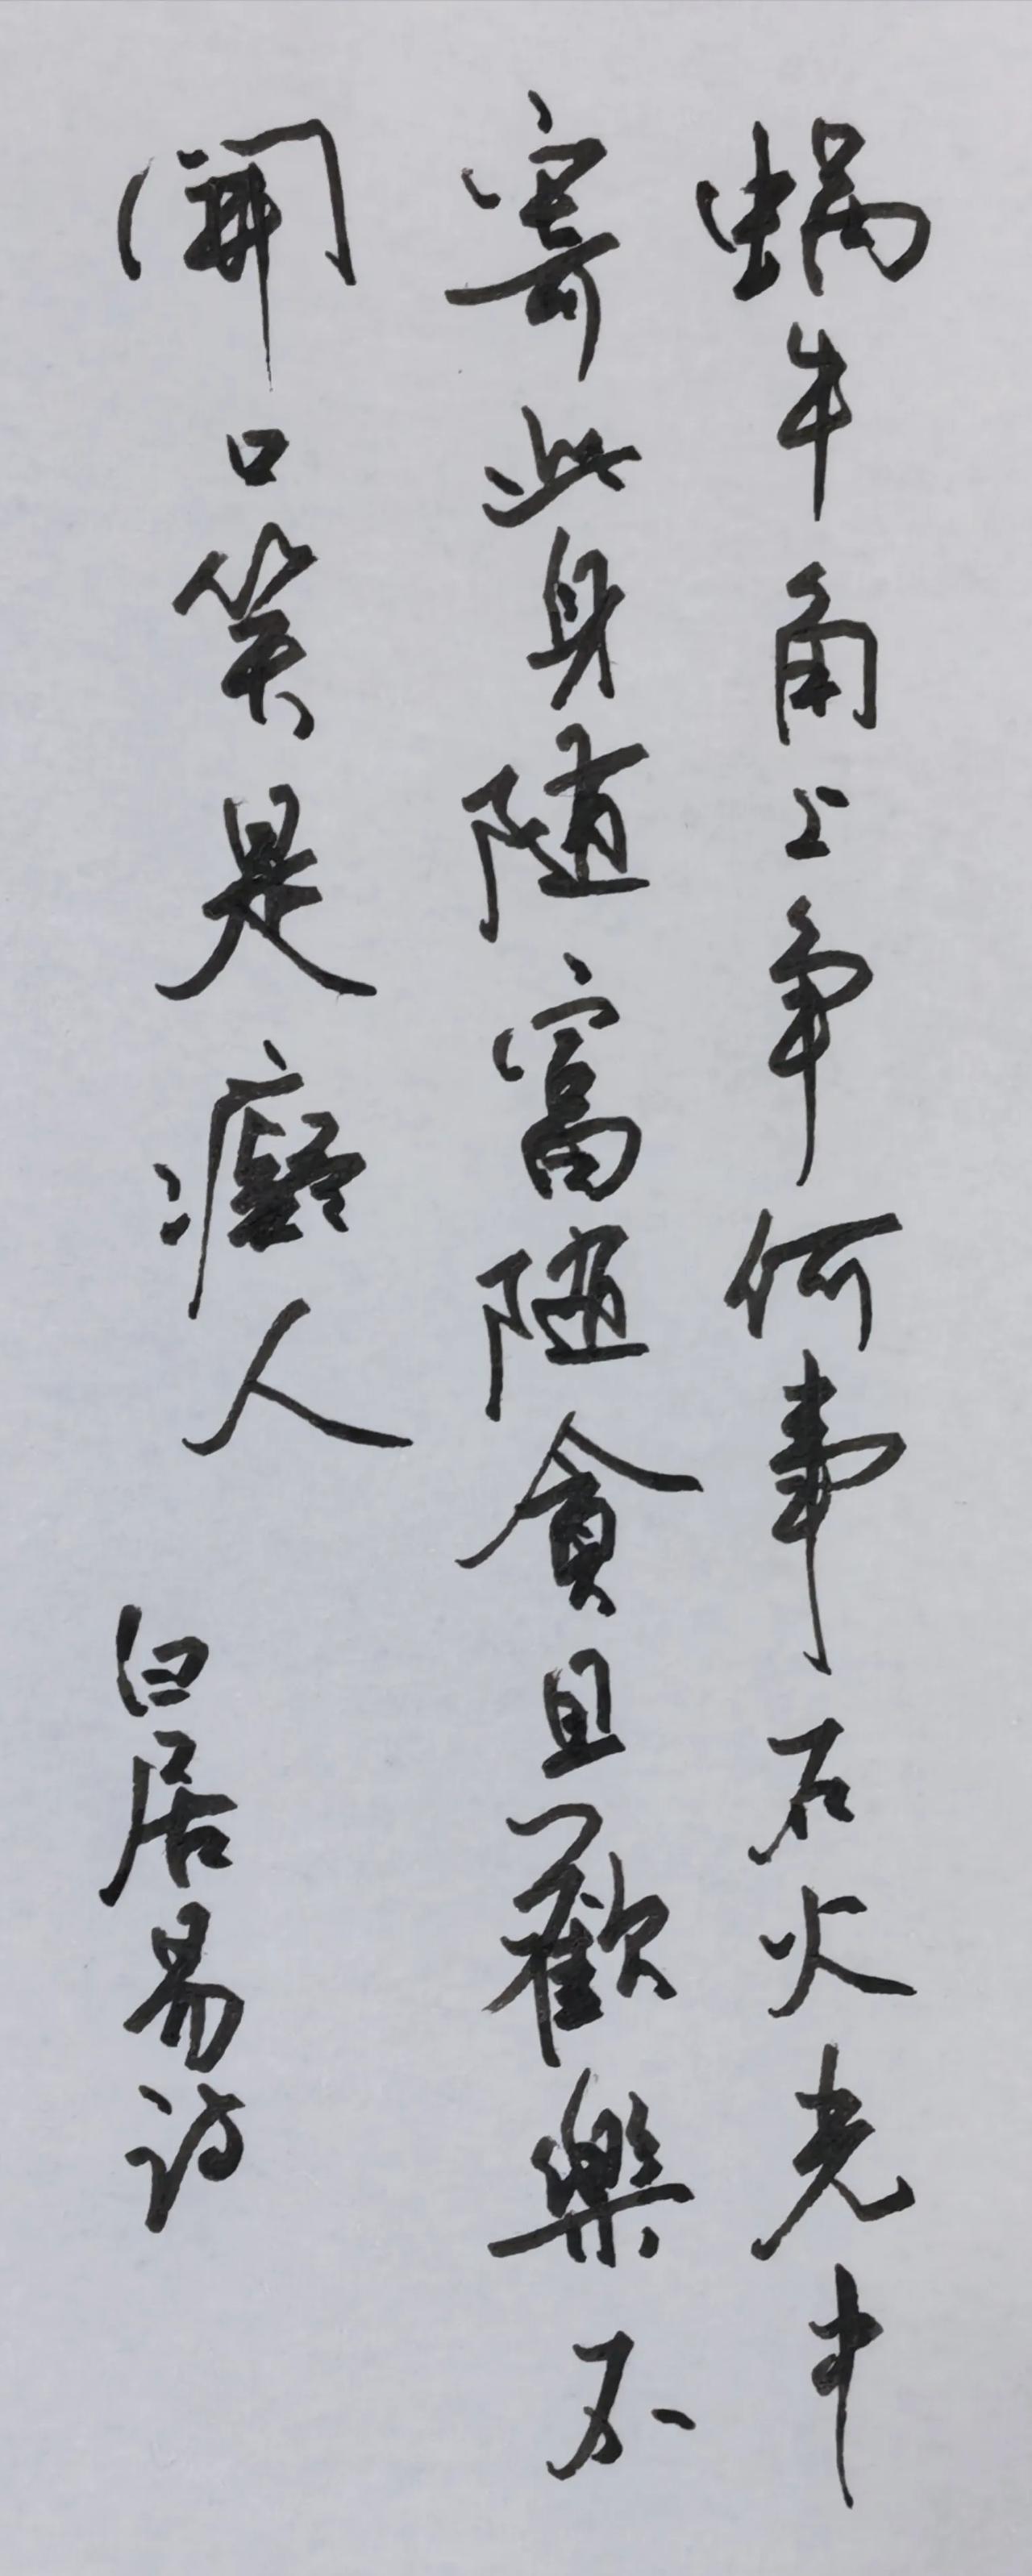 蝸牛角上争何事石火光中
寄此身随富随貪且歡樂不
開口笑是癡人 白居易詩